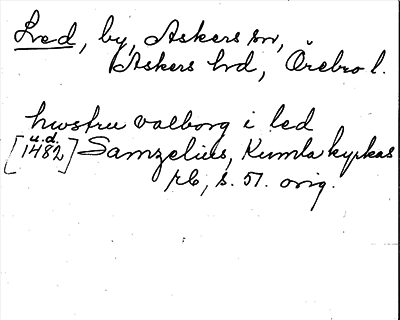 Lred, by, Askers sn,
Askers hrd, Örebro l.
hwstru valborg i led
[u.d. 1482] Samzelius, Kumla kyrkas
rb, s. 51. orig.